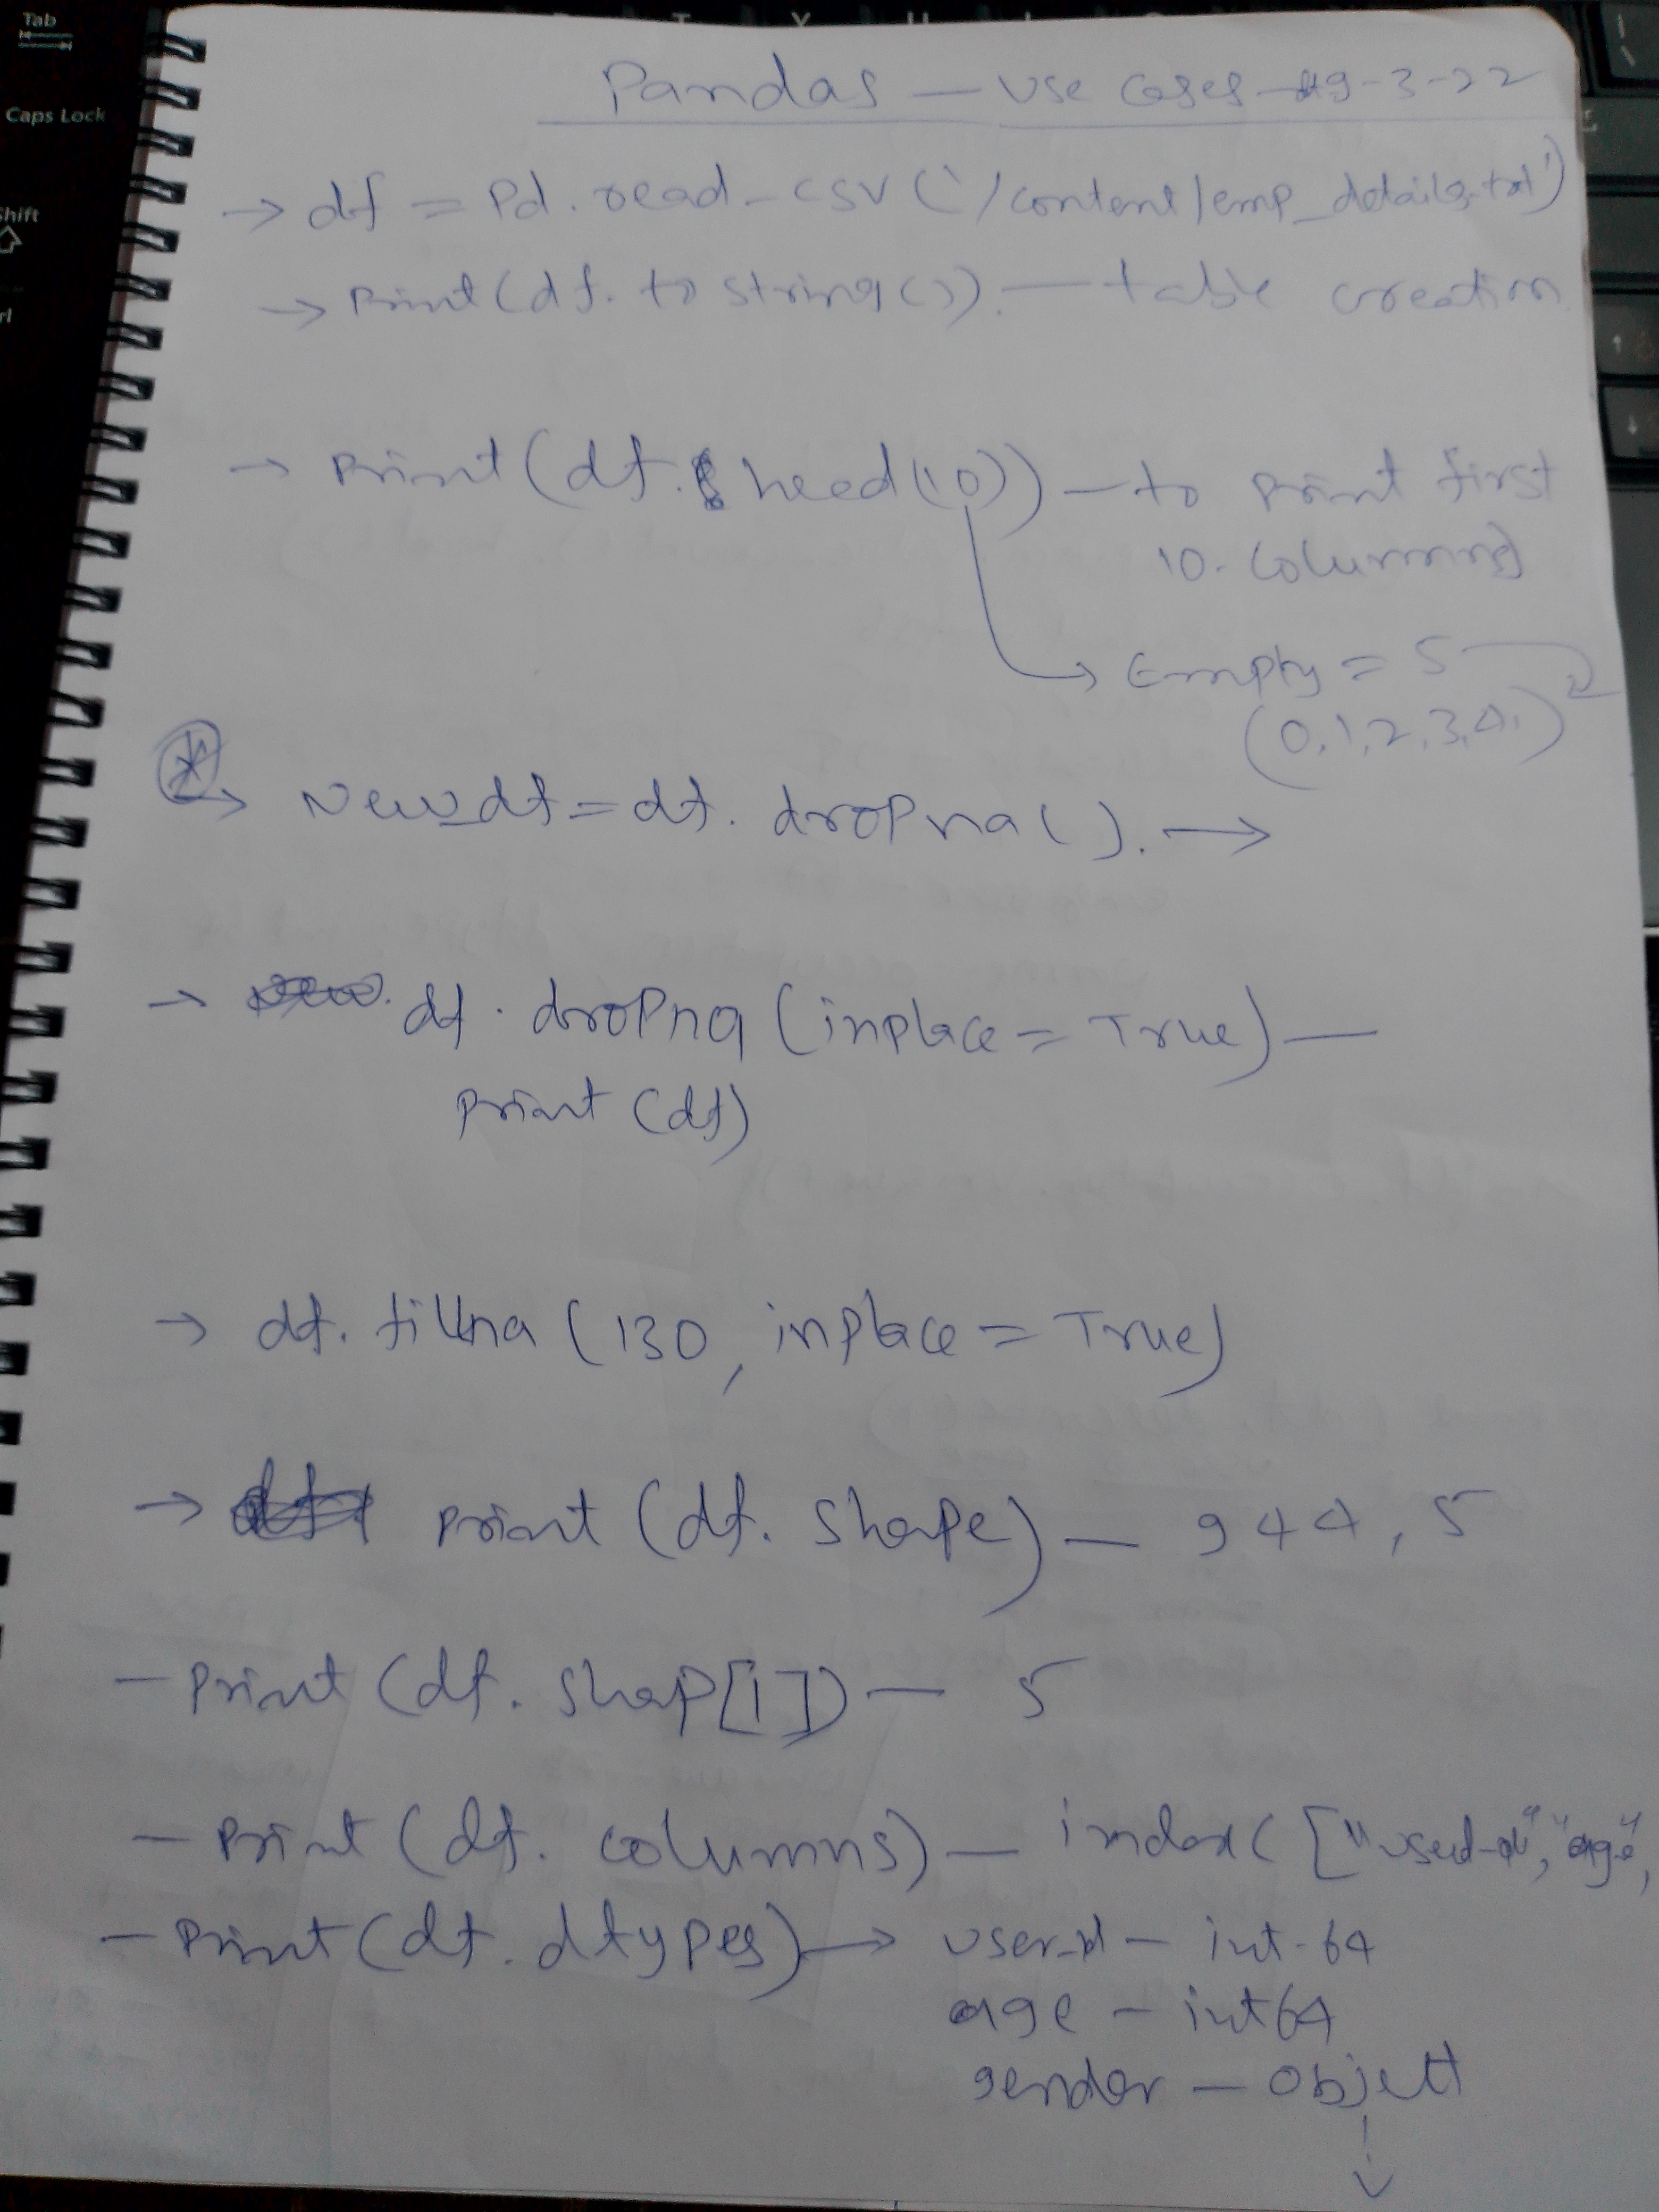 Tab
Caps Lock
Shift
Pandas — use cases - 19-3-22
→ df = Pd.read_csv('/content/emp_details.txt')
→ Print(df.to string()). — table creation
→ Print(df.head(10)) — to Print first
10. columns
→ Empty = 5
(0,1,2,3,4,)
→ New_df = df.dropna(). →
→ df.dropna(inplace = True) —
print(df)
→ df.fillna(130, inplace = True)
→ Print(df.shape) — 944, 5
- Print(df.shap[1]) — 5
- Print(df.columns) — index(["used-d", "age",
- Print(df.dtypes) → user_id — int-64
age — int64
gender — object